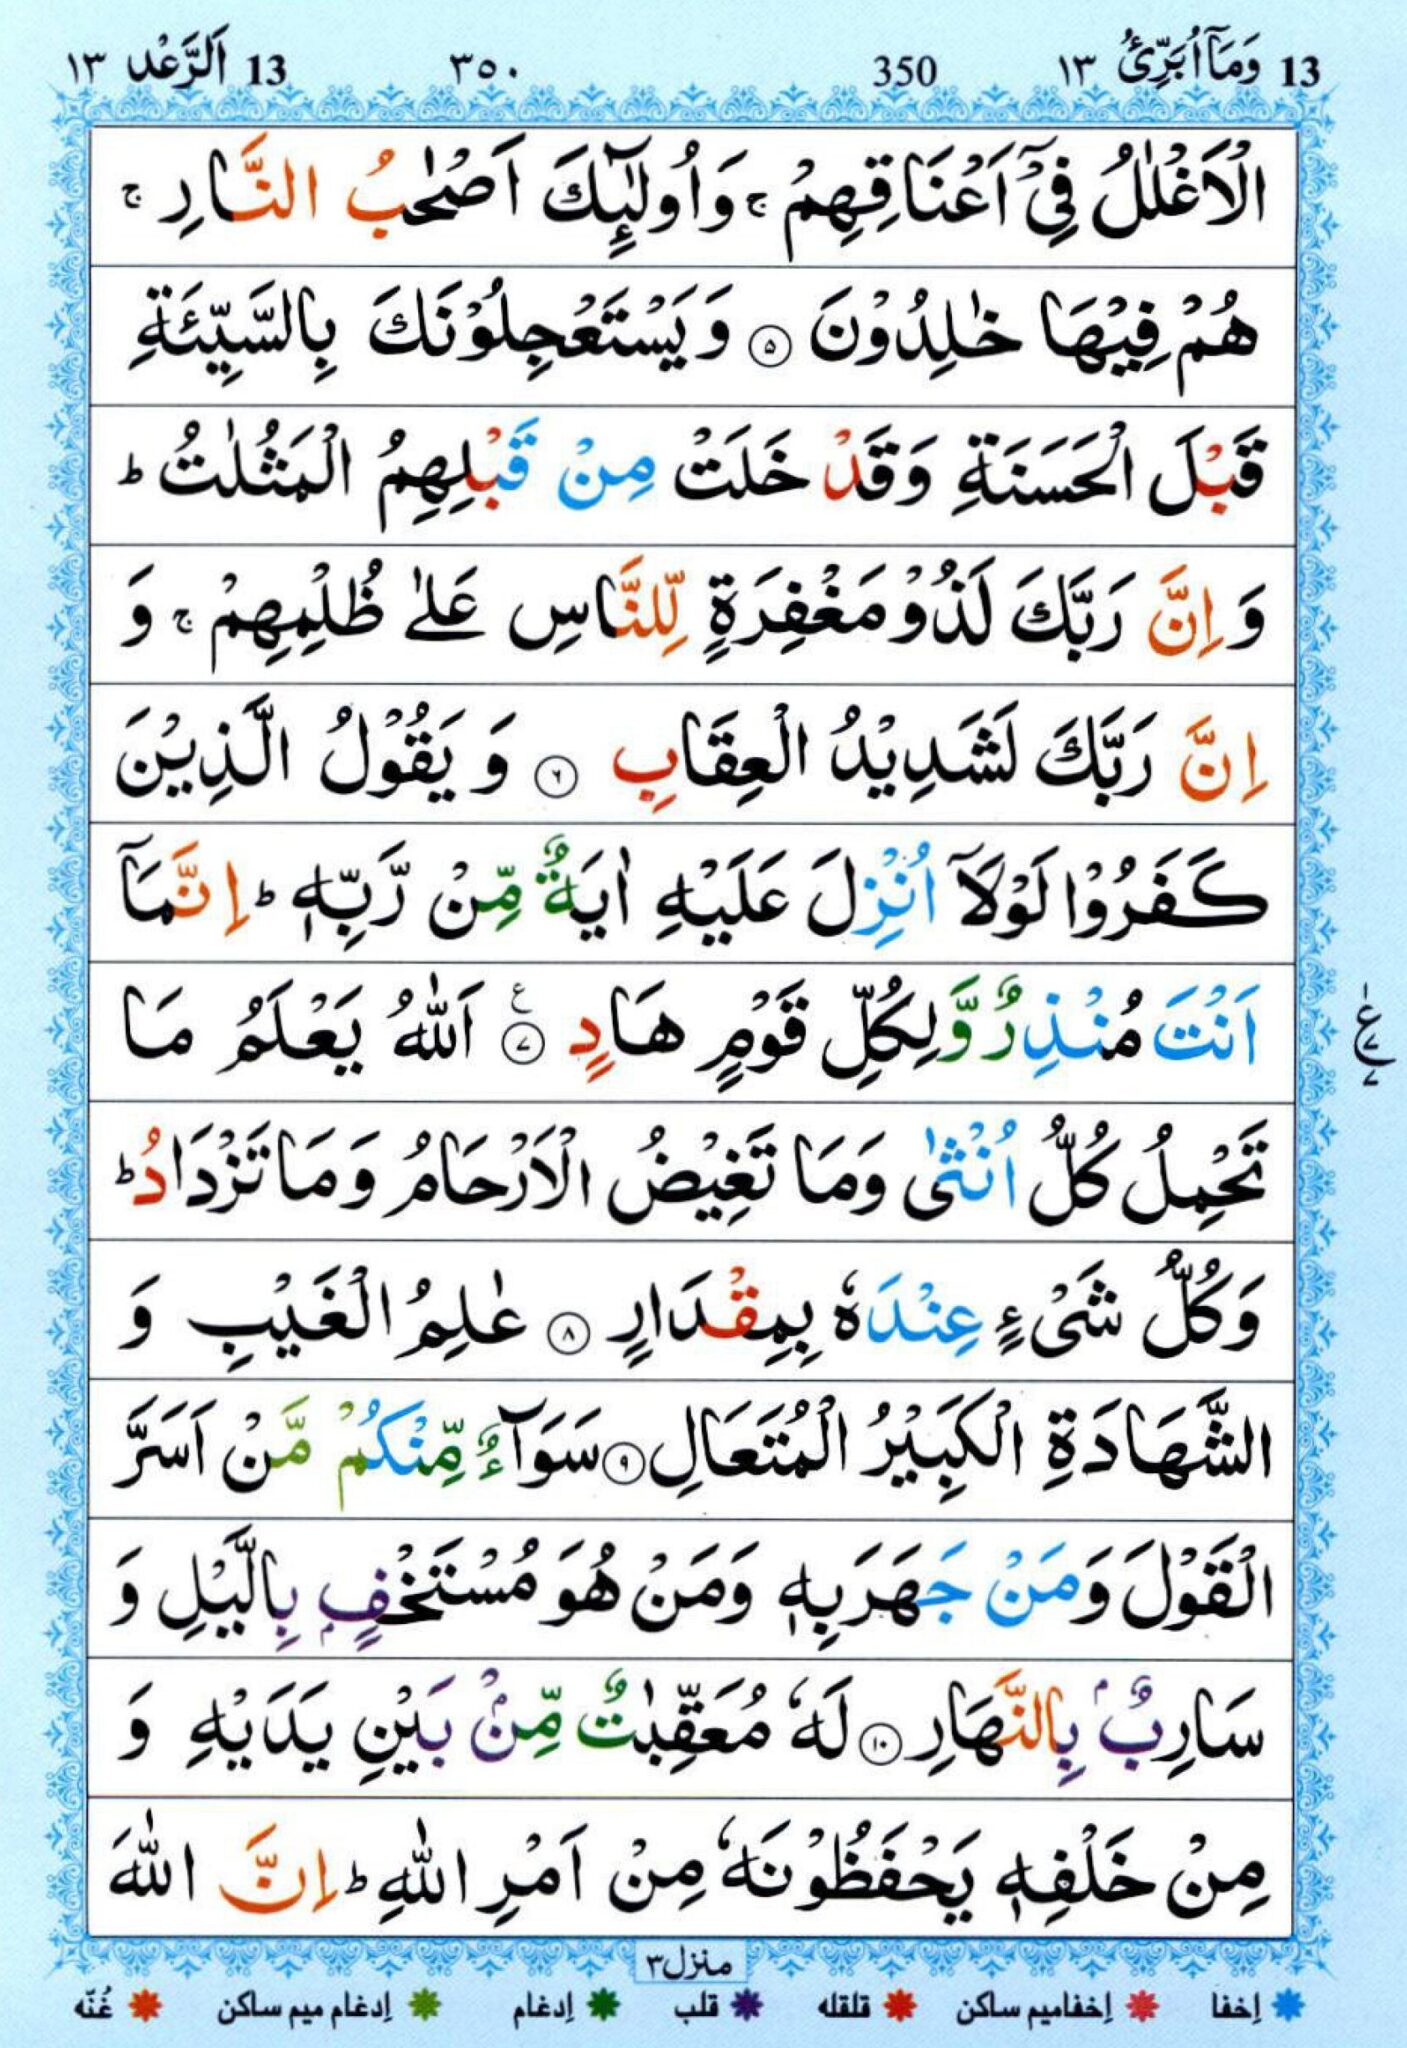 13 وَمَاۤ اُبَرِّئُ ١٣ 350 ٣٥٠ 13 اَلرَّعْد ١٣
الْاَغْلٰلُ فِیْۤ اَعْنَاقِهِمْ ۚ وَاُولٰٓىِٕكَ اَصْحٰبُ النَّارِ ۚ
هُمْ فِیْهَا خٰلِدُوْنَ ۝٥ وَیَسْتَعْجِلُوْنَكَ بِالسَّیِّئَةِ
قَبْلَ الْحَسَنَةِ وَقَدْ خَلَتْ مِنْ قَبْلِهِمُ الْمَثُلٰتُ ؕ
وَ اِنَّ رَبَّكَ لَذُوْ مَغْفِرَةٍ لِّلنَّاسِ عَلٰی ظُلْمِهِمْ ۚ وَ
اِنَّ رَبَّكَ لَشَدِیْدُ الْعِقَابِ ۝٦ وَ یَقُوْلُ الَّذِیْنَ
كَفَرُوْا لَوْلَاۤ اُنْزِلَ عَلَیْهِ اٰیَةٌ مِّنْ رَّبِّهٖ ؕ اِنَّمَاۤ
اَنْتَ مُنْذِرٌ وَّلِكُلِّ قَوْمٍ هَادٍ ۝٧ ع اَللّٰهُ یَعْلَمُ مَا
تَحْمِلُ كُلُّ اُنْثٰی وَمَا تَغِیْضُ الْاَرْحَامُ وَمَا تَزْدَادُ ؕ
وَكُلُّ شَیْءٍ عِنْدَهٗ بِمِقْدَارٍ ۝٨ عٰلِمُ الْغَیْبِ وَ
الشَّهَادَةِ الْكَبِیْرُ الْمُتَعَالِ ۝٩ سَوَآءٌ مِّنْكُمْ مَّنْ اَسَرَّ
الْقَوْلَ وَمَنْ جَهَرَ بِهٖ وَمَنْ هُوَ مُسْتَخْفٍۭ بِالَّیْلِ وَ
سَارِبٌۢ بِالنَّهَارِ ۝١٠ لَهٗ مُعَقِّبٰتٌ مِّنْۢ بَیْنِ یَدَیْهِ وَ
مِنْ خَلْفِهٖ یَحْفَظُوْنَهٗ مِنْ اَمْرِ اللّٰهِ ؕ اِنَّ اللّٰهَ
منزل ٣
إخفا إخفامیم ساكن قلقله قلب إدغام إدغام میم ساكن غُنّه